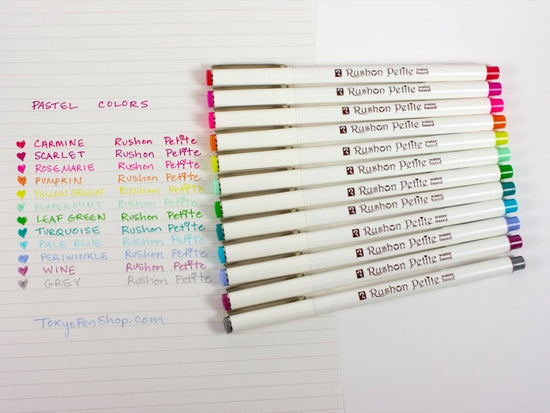 PASTEL COLORS
CARMINE Rushon Petite
SCARLET Rushon Petite
ROSEMARIE Rushon Petite
PUMPKIN Rushon Petite
YELLOW GREEN Rushon Petite
PEPPERMINT Rushon Petite
LEAF GREEN Rushon Petite
TURQUOISE Rushon Petite
PALE BLUE Rushon Petite
PERIWINKLE Rushon Petite
WINE Rushon Petite
GREY Rushon Petite
TOKYOPENSHOP.COM
Rushon Petite water based
Rushon Petite water based
Rushon Petite water based
Rushon Petite water based
Rushon Petite water based
Rushon Petite water based
Rushon Petite water based
Rushon Petite water based
Rushon Petite water based
Rushon Petite water based
Rushon Petite water based